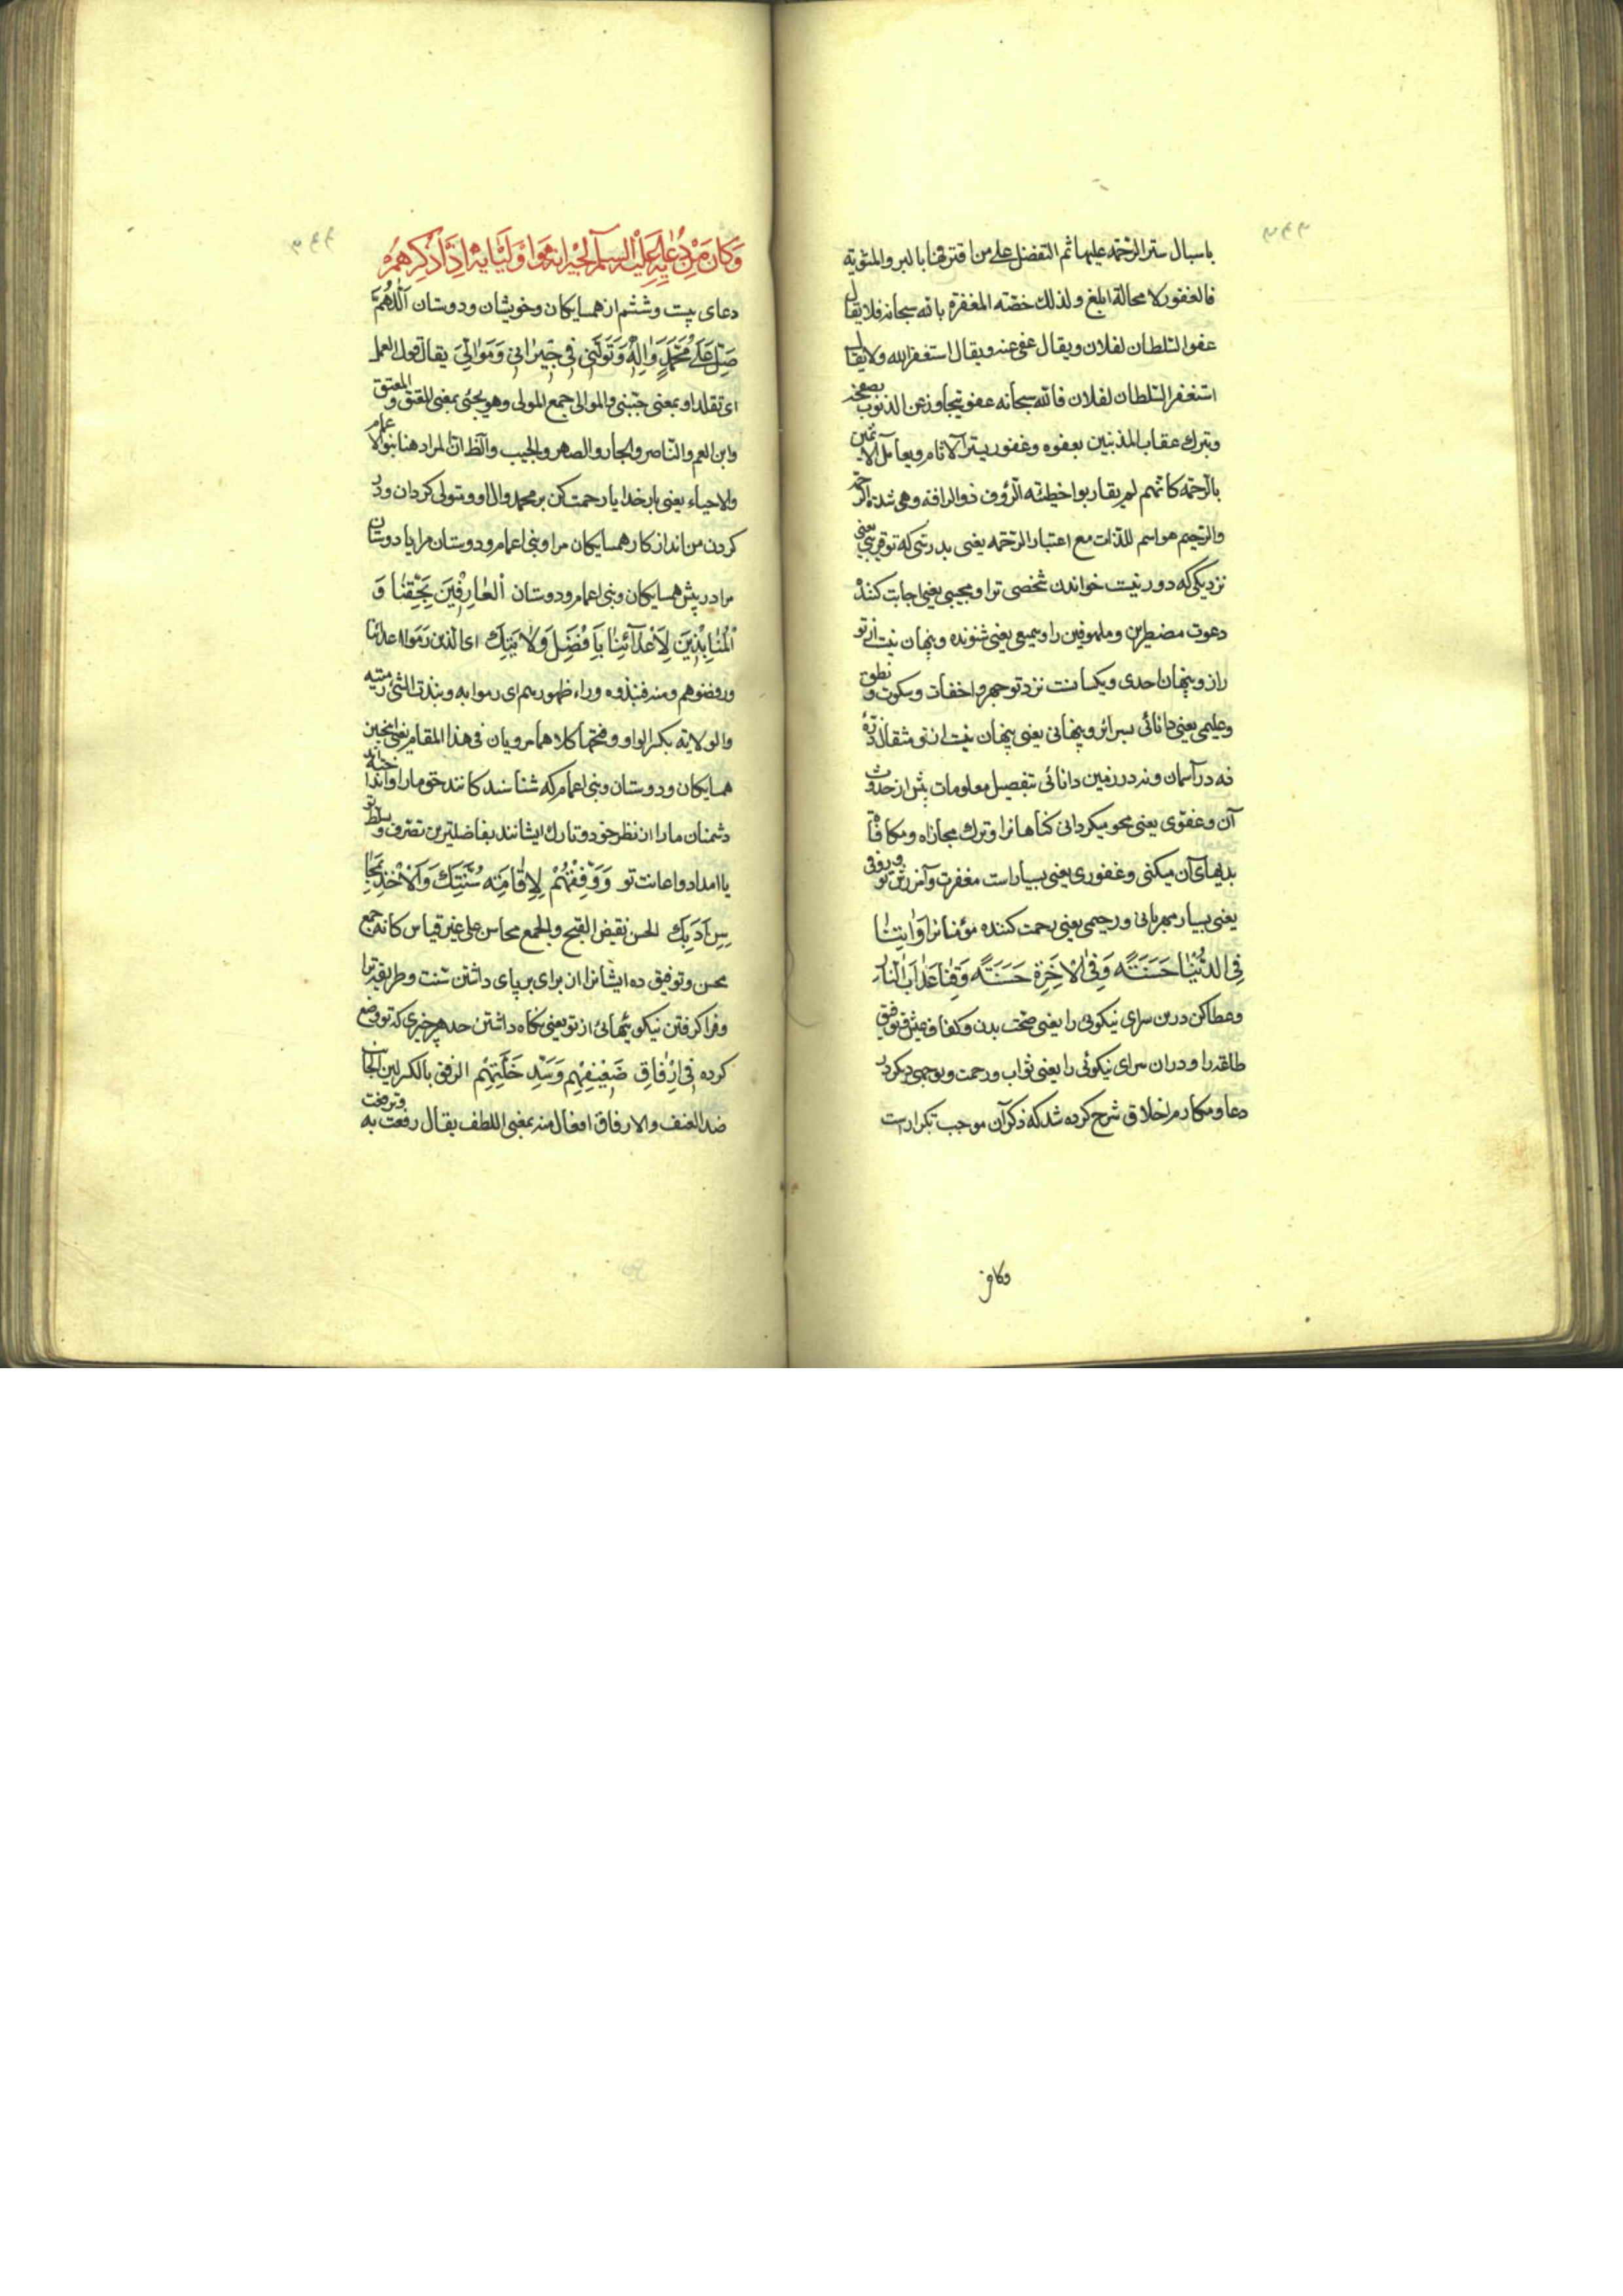 ٣٤٣
باسبال ستر الرحمه عليها ثم التفضل على من اقترفها بالبر والمثوبة
فالغفور لا محالة ابلغ ولذلك خصّه المغفرة بالله سبحانه فلا يقال
عفو السلطان لفلان ويقال عفى عنه ويقال استغفر الله ولا يقال
استغفر السلطان لفلان فالله سبحانه عفو يتجاوز عن الذنوب
ويترك عقاب المذنبين بعفوه وغفور يستر الآثام ويعامل الآثمين
بالرحمه كانهم لم يقاربوا خطيئه الرؤف ذو الرافه وهى شدة الرحمه
والرحيم هو اسم للذات مع اعتبار الرحمه يعنى بدرستى كه تو قريبى يعنى
نزديكى كه دور نيست خواندن شخصى ترا ومجيبى يعنى اجابت كننده
دعوت مضطرين وملهوفين را وسميع يعنى شنونده وپنهان نيست از تو
راز وپنهان احدى ويكسانست نزد تو جهر واخفات وسكوت ونطق
وعليمى يعنى دانائى بسرائر وپنهانى يعنى پنهان نيست از تو مثقال ذرّهٔ
نه در آسمان ونه در زمين دانائى بتفصيل معلومات پيش از حدوث
آن وعفوى يعنى محو ميكردانى كناهانرا وترك مجازاه ومكافات
بديهاى آن ميكنى وغفورى يعنى بسيار است مغفرت وآمرزش تو ورؤفى
يعنى بسيار مهربانى ورحيمى يعنى رحمت كننده مؤمنانرا وَاٰتِنٰا
فِى الدُّنْيٰا حَسَنَةً وَفِى الْاٰخِرَةِ حَسَنَةً وَقِنٰا عَذٰابَ النّٰارِ
وعطا كن درين سراى نيكوئى را يعنى صحّت بدن وكفاف عيش وتوفيق
طاعة را ودران سراى نيكوئى را يعنى ثواب ورحمت وبوجهى ديكر در
دعا ومكارم اخلاق شرح كرده شد كه ذكر آن موجب تكرار است
وكان من
٣٤٤
وَكَانَ مِنْ دُعٰائِهِ عَلَيْهِ السَّلٰم لِجيرٰانِهِ وَاَوْلِيٰائِهِ اِذٰا ذَكَرَهُمْ
دعاى بيست وششم از همسايكان وخويشان ودوستان اَللّٰهُمَّ
صَلِّ عَلٰى مُحَمَّدٍ وَاٰلِهِ وَتَوَلَّنى فى جيرٰانى وَمَوٰالِىَّ يقال تولى العمل
اى تقلد او بمعنى والموالى جمع المولى وهو يجئى بمعنى المعتق والمعتق
وابن العم والناصر والجار والصهر والحبيب والظ ان المراد هنا بنوا الاعمام
والاحباء يعنى بار خدايا رحمت كن بر محمد وآل او ومتولى كردان ودر
كردن من انداز كار همسايكان مرا وبنى اعمام ودوستان مرا يا دوستان
مرا در پيش همسايكان وبنى اعمام ودوستان اَلْعٰارِفينَ بِحَقِّنٰا وَ
الْمُنٰابِذينَ لِاَعْدٰائِنٰا بِاَفْضَلِ وَلٰايَتِكَ اى الذين رموا اعدائنا
ورفضوهم ومنه فنبذوه وراء ظهورهم اى رموا به ونبذت الشئ رميته
والولاية بكسر الواو وفتحها كلاهما مرويان فى هذا المقام يعنى چنين
همسايكان ودوستان وبنى اعمام كه شناسندكانند حق ما را واندازندهٔ
دشمنان ما را از نظر خود وتارك ايشانند بفاضلترين تصرف وتسلط تو
يا امداد واعانت تو وَوَفِّقْهُمْ لِاِقٰامَةِ سُنَّتِكَ وَالْاَخْذِ بِمَحٰا
سِنِ اَدَبِكَ الحسن نقيض القبح والجمع محاسن على غير قياس كانه جمع
محسن وتوفيق ده ايشانرا از براى بر پاى داشتن سنت وطريقه ترا
وفرا كرفتن نيكوئيهائى از تو يعنى نكاه داشتن حد هر چيزى كه تو وضع
كرده فى اِرْفٰاقِ ضَعيفِهِمْ وَسَدِّ خَلَّتِهِمْ الرفق بالكسر لين الجانب
ضد العنف والارفاق افعال منه بمعنى اللطف يقال رفقت به وترفقت